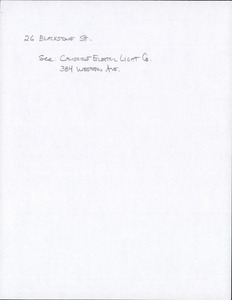 26 BLACKSTONE ST.
SEE CAMBRIDGE ELECTRIC LIGHT CO.
384 WESTERN AVE.